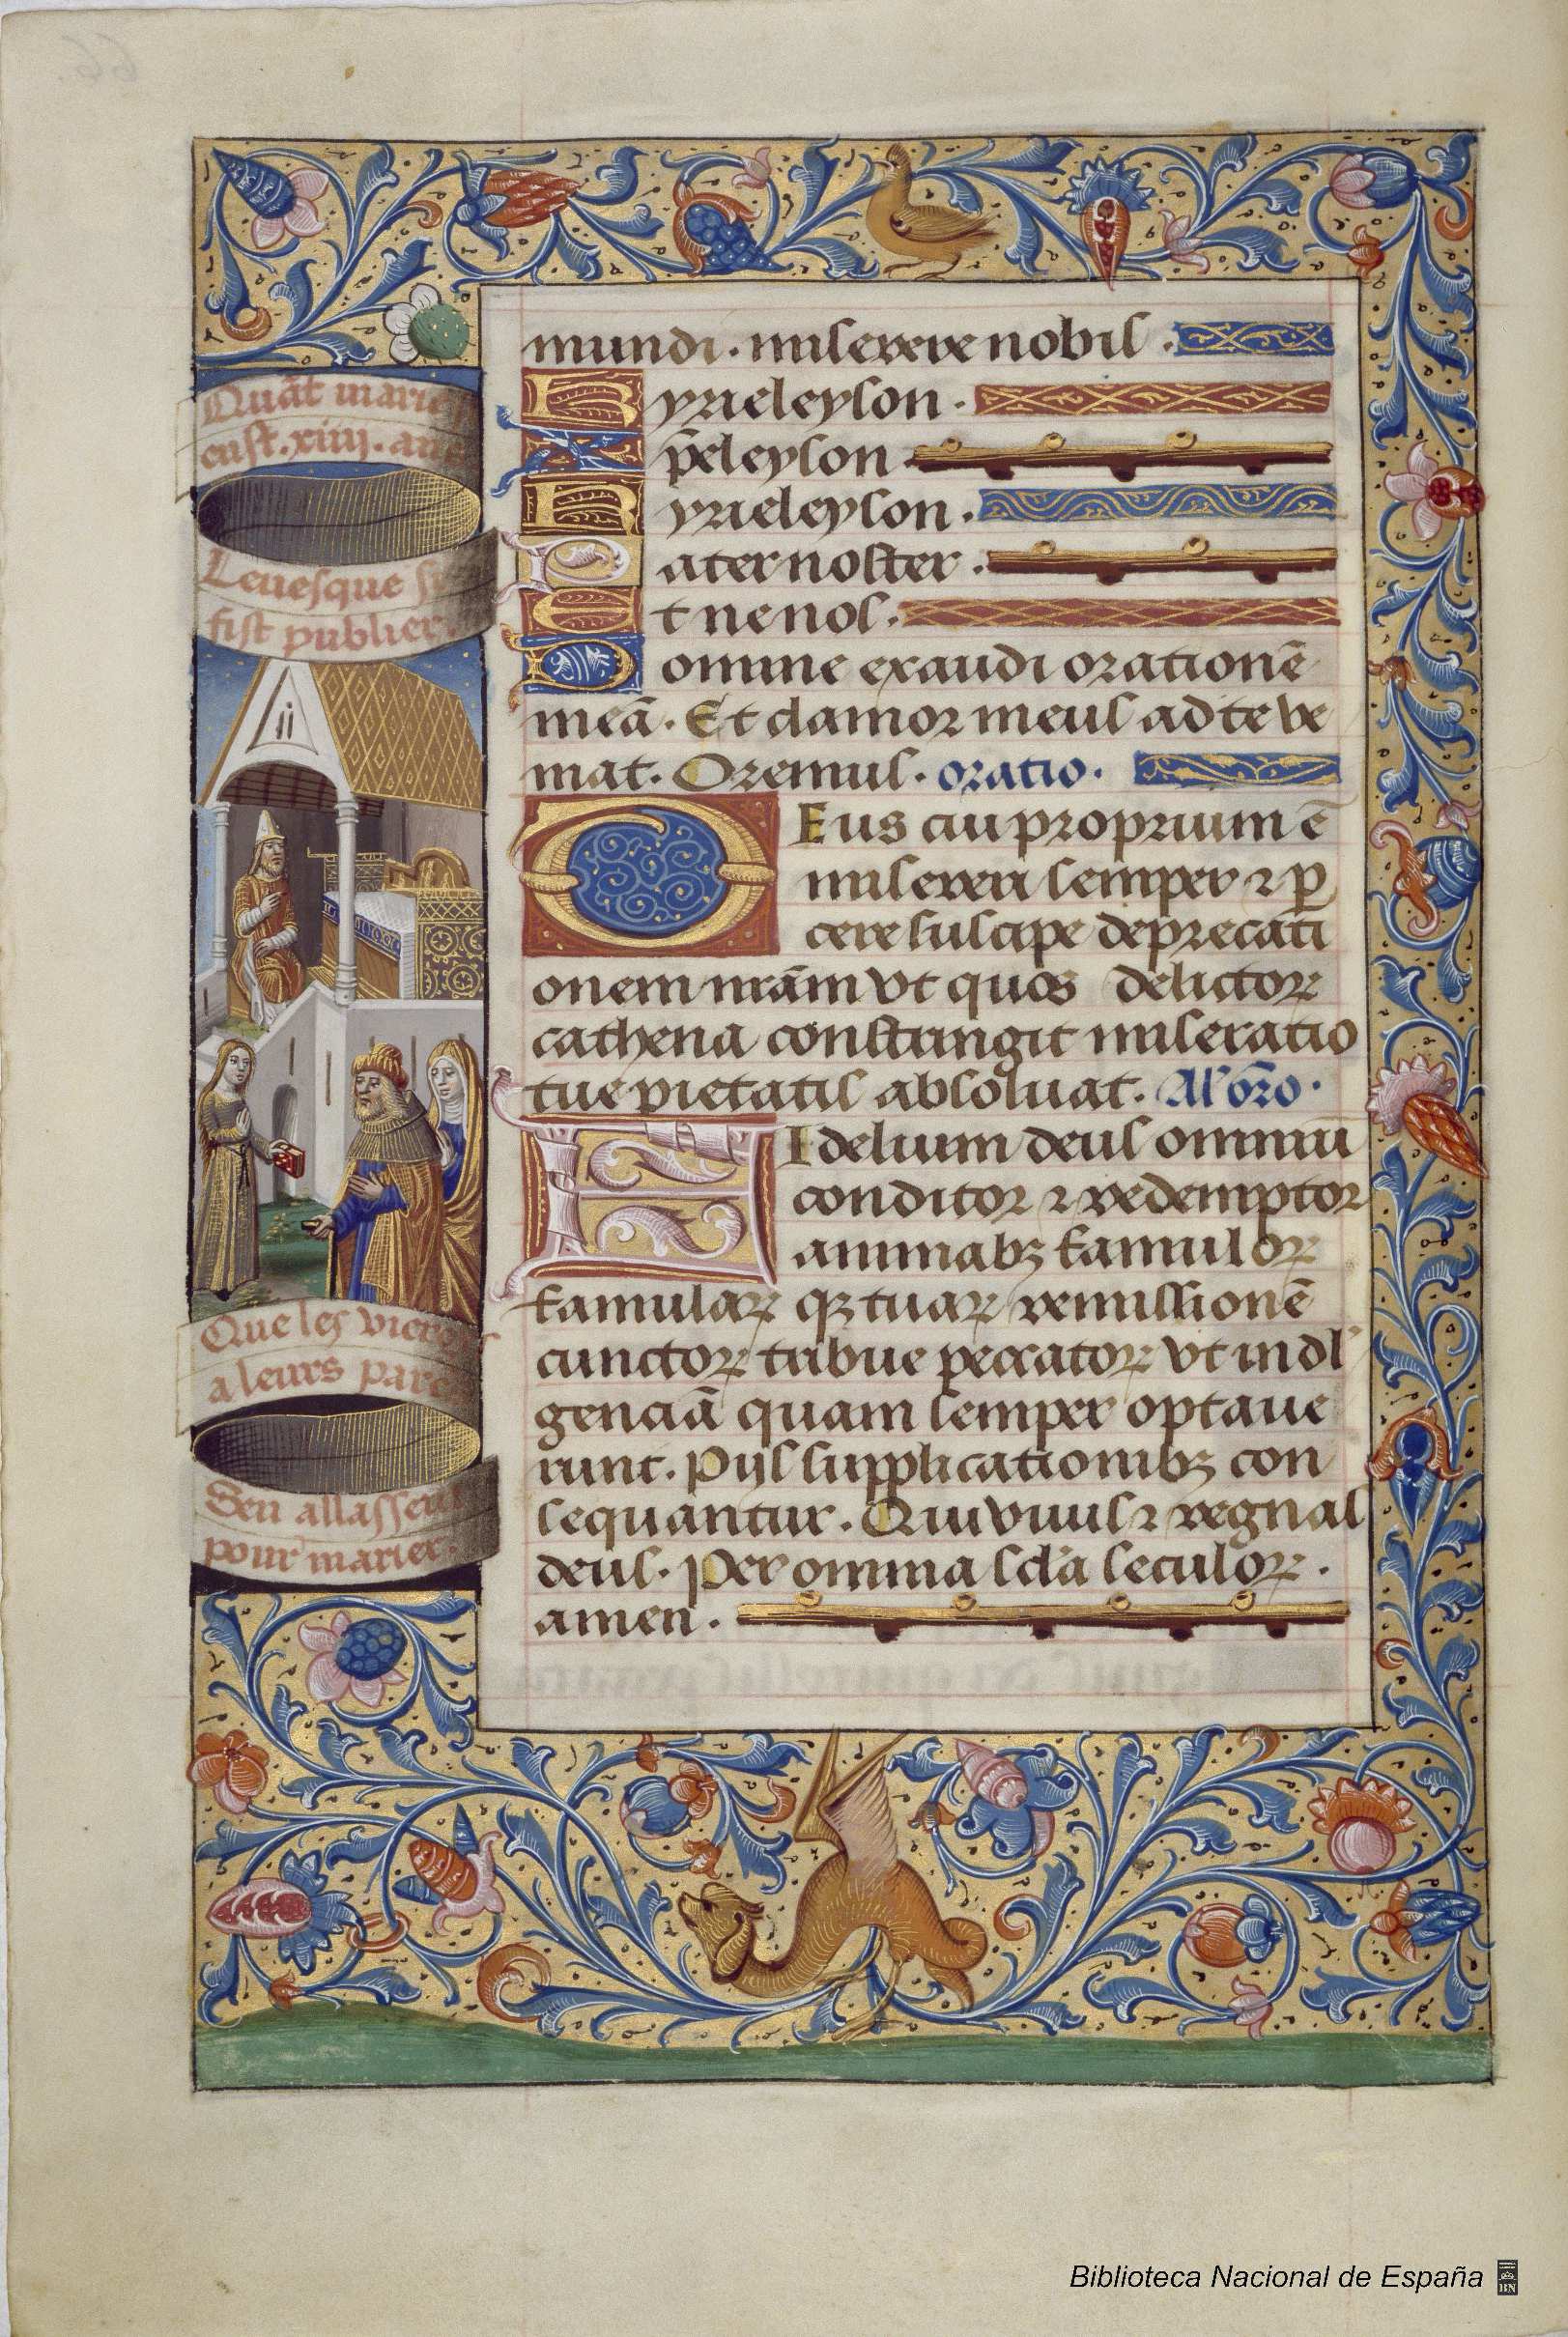 mundi. miserere nobis.
Kyrieleyson.
Xp̄eleyson
Kyrieleyson.
Pater noster.
Et ne nos.
Domine exaudi orationē
meā. Et clamor meus ad te ve
niat. Oremus. oratio.
DEus cui proprium ē
misereri semper ⁊ ꝑ
cere suscipe deprecati
onem nrām vt quos delictoꝝ
cathena constringit miseratio
tue pietatis absoluat. Al' orō.
FIdelium deus omniū
conditor ⁊ redemptor
animabꝫ famuloꝝ
famulaꝝ qꝫ tuaꝝ remissionē
cunctoꝝ tribue peccatoꝝ vt indl'
genciā quam semper optaue
runt. Pijs supplicationibꝫ con
sequantur. Qui viuis ⁊ regnas
deus. Per omnia scl'a seculoꝝ.
amen.
Quāt marie
eust. xiiij. ans
Leuesque
fist publier.
Que les vierges
a leurs pare
Sen allassent
pour marier.
Biblioteca Nacional de España
BN